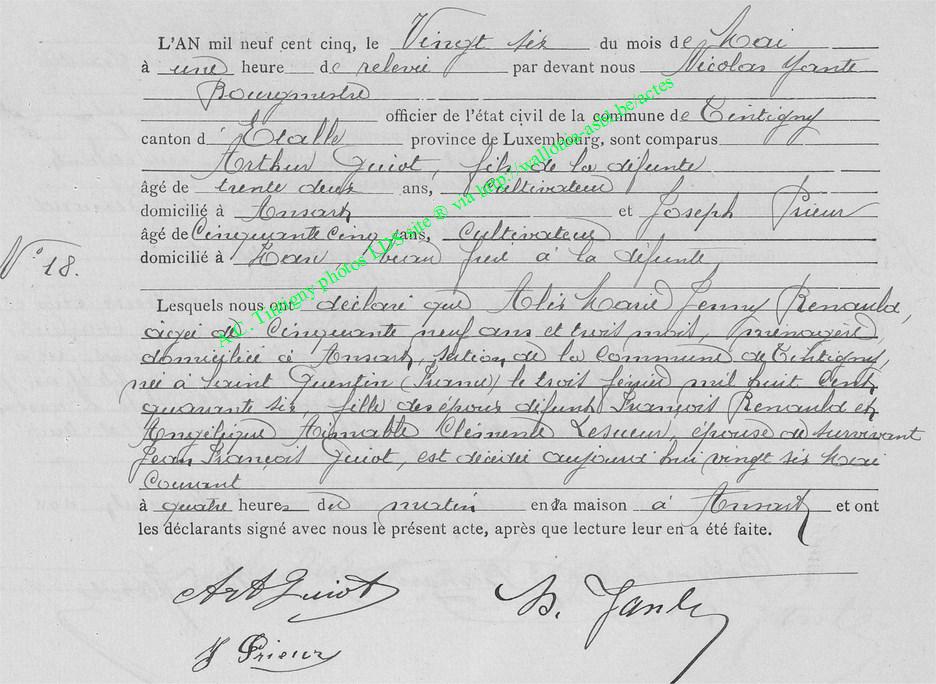 L'AN mil neuf cent cinq, le Vingt six du mois de Mai
à une heure de relevée par devant nous Nicolas Yante
Bourgmestre
officier de l'état civil de la commune de Tintigny
canton d'Etalle province de Luxembourg, sont comparus
Arthur Guiot, fils de la défunte
âgé de trente deux ans, Cultivateur
domicilié à Ansart et Joseph Prieur
âgé de Cinquante Cinq ans, Cultivateur
N° 18.
domicilié à Han, beau frère à la défunte
Lesquels nous ont déclaré que Alix Marie Jenny Renauld,
âgée de Cinquante neuf ans et trois mois, ménagère,
domiciliée à Ansart, section de la Commune de Tintigny,
née à Saint Quentin (France) le trois février mil huit Cent
quarante six, fille des époux défunts François Renauld et
Angélique Aimable Clémence Lesueur, épouse de survivant
Jean François Guiot, est décédée aujourd'hui vingt six Mai
Courant
à quatre heures du matin en sa maison à Ansart et ont
les déclarants signé avec nous le présent acte, après que lecture leur en a été faite.
Art Guiot
N. Yante
J Prieur
A.C. Tintigny photos LDS site ® via http://wallonia-asbl.be/actes